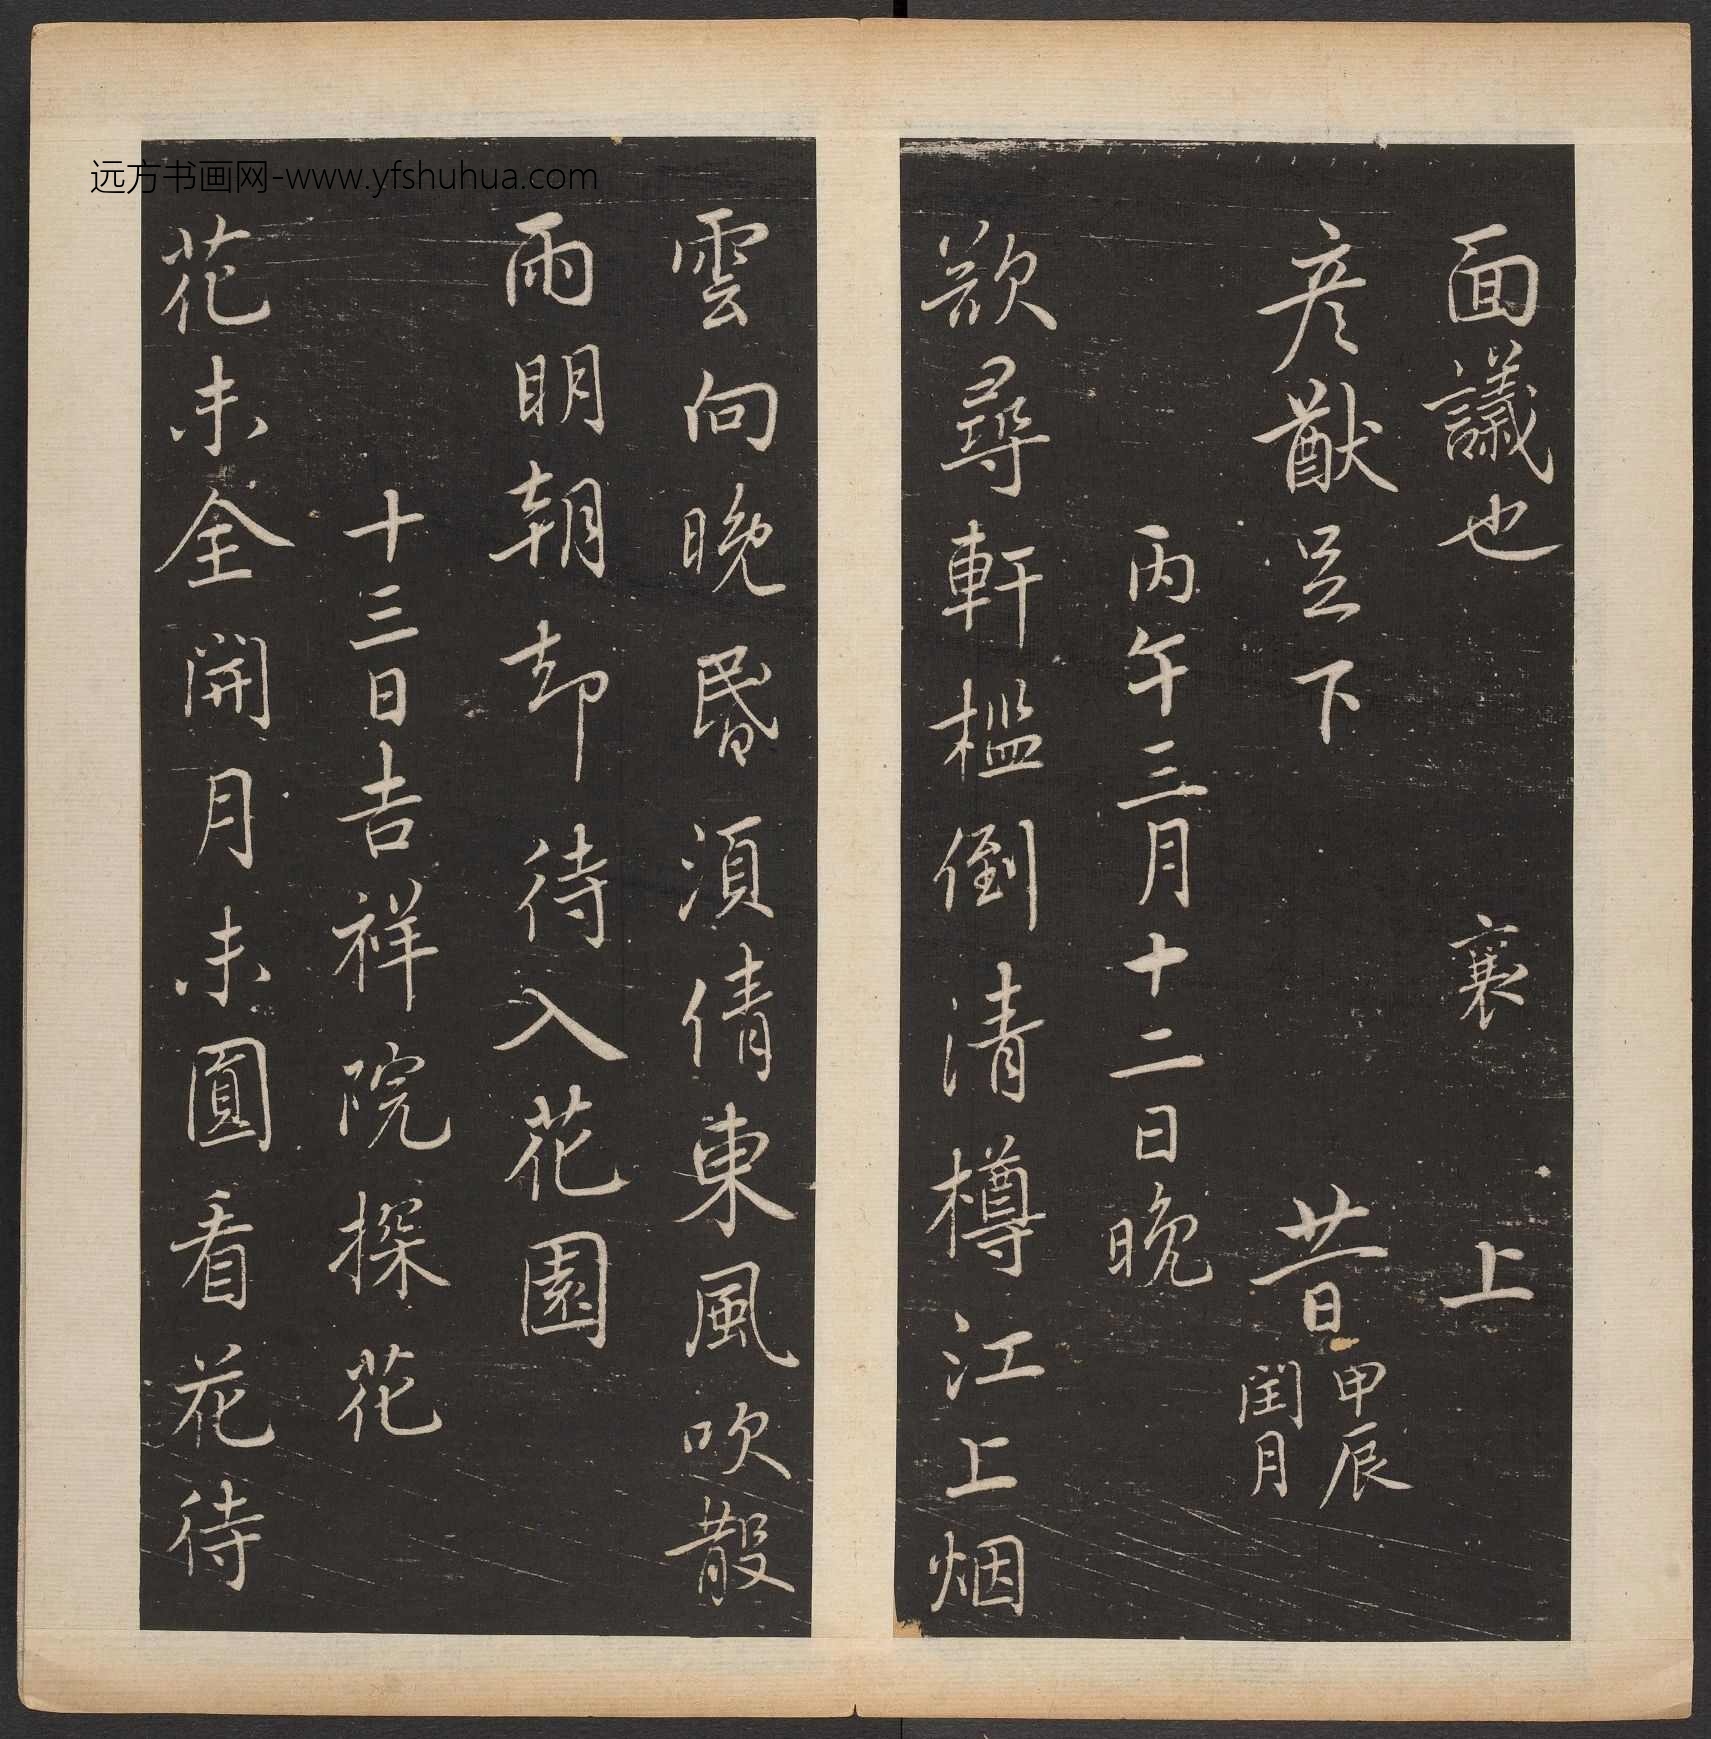 远方书画网-www.yfshuhua.com
面議也 襄 上
彦猷足下 廿一日 甲辰
閏月
丙午三月十二日晚
欲尋軒檻倒清樽江上烟
雲向晚昏須倩東風吹散
雨明朝却待入花園
十三日吉祥院探花
花未全開月未圓看花待